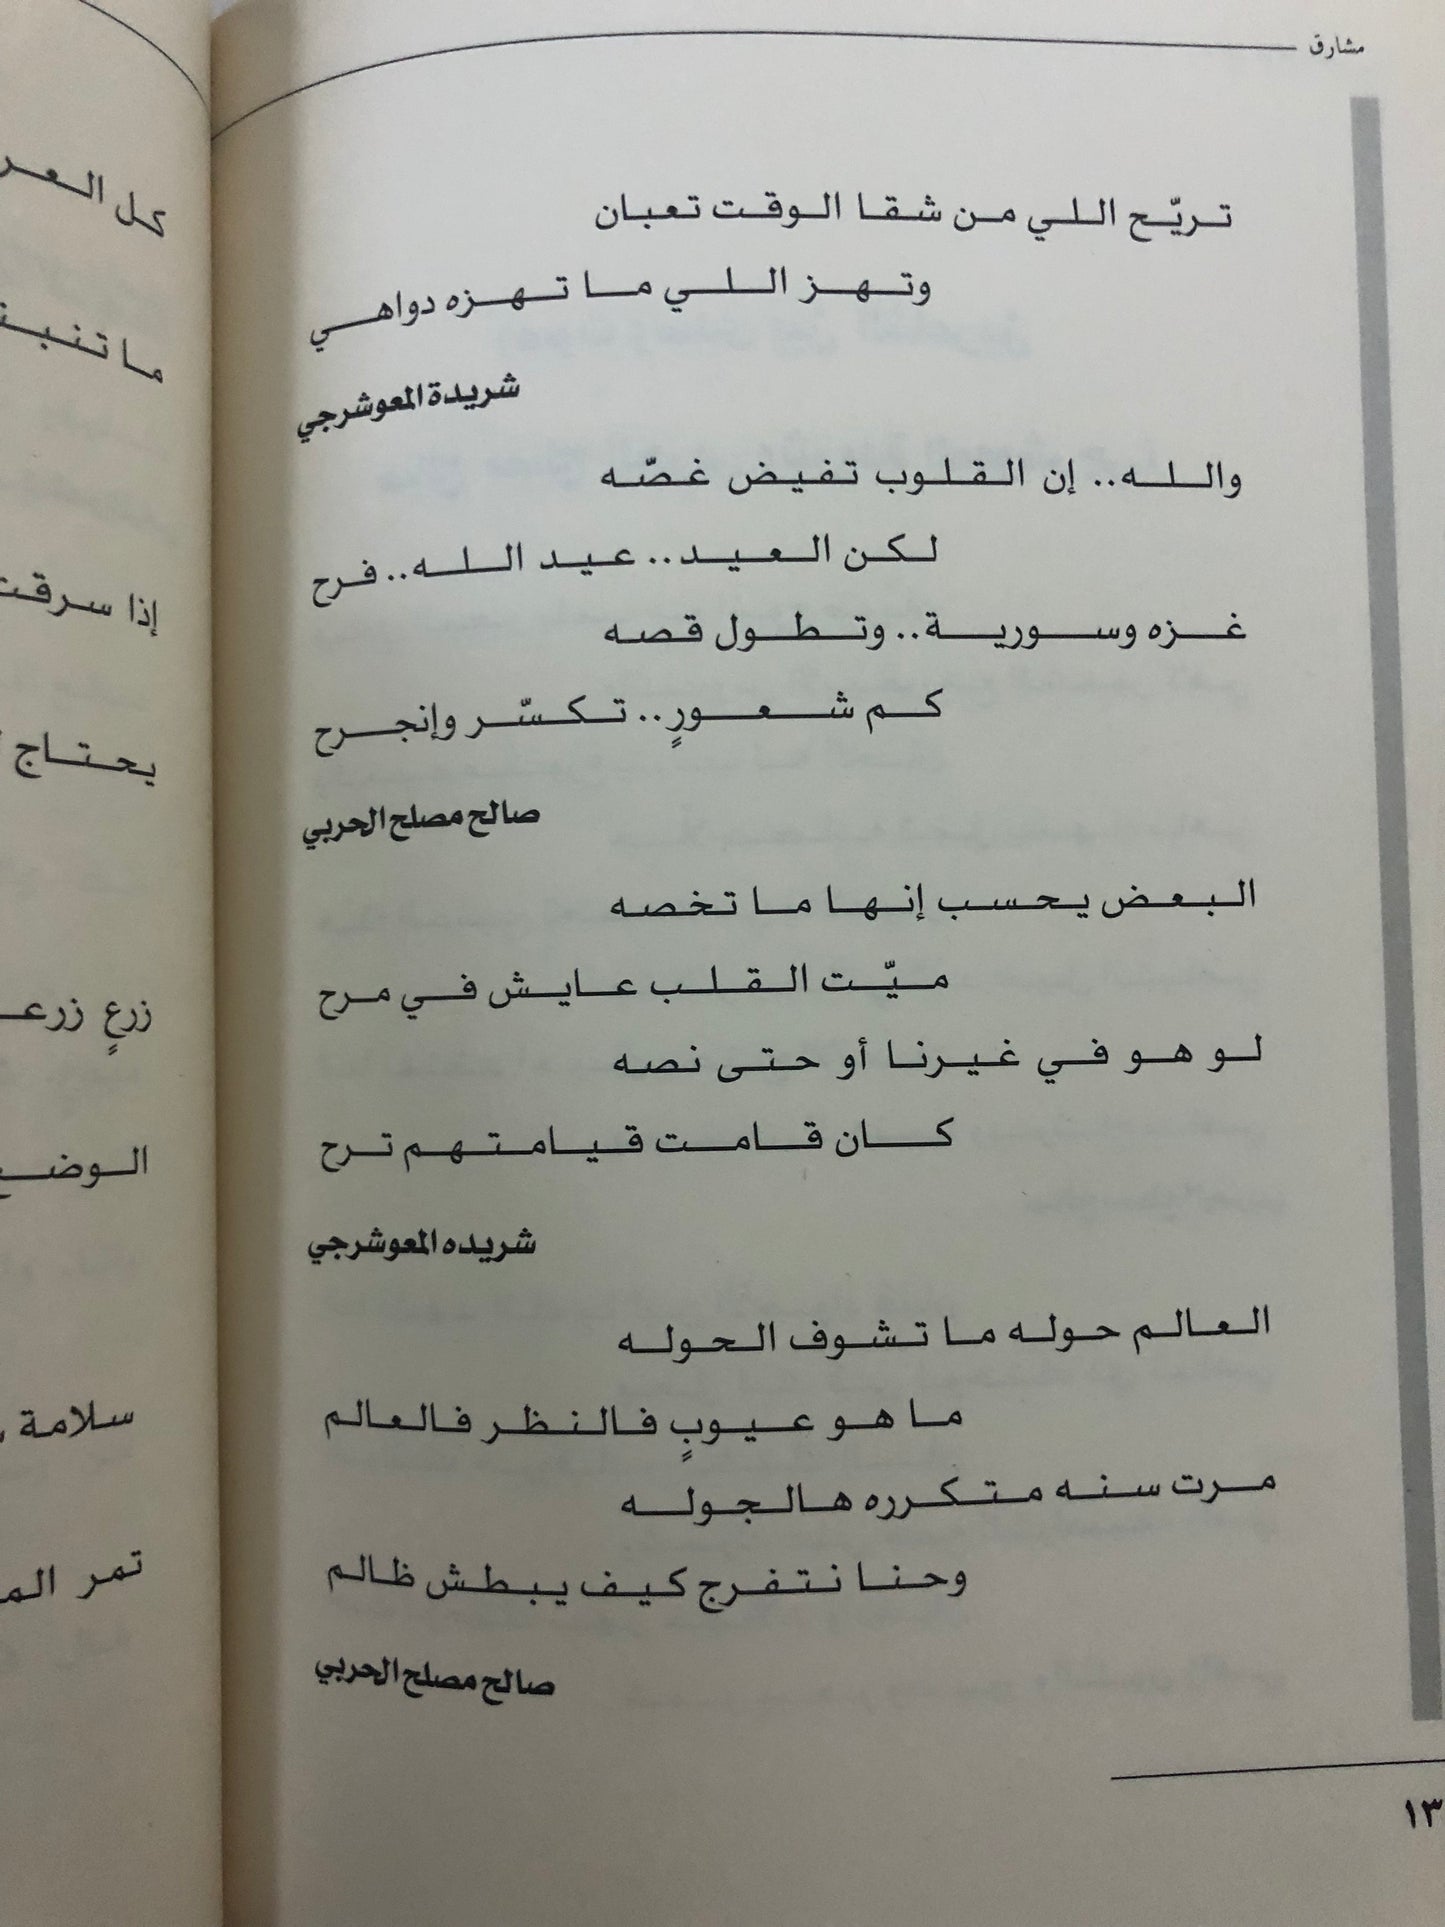 مشارق
تريّح اللي من شقا الوقت تعبان
وتهز اللي ما تهزه دواهي
شريدة المعوشرجي
والله.. إن القلوب تفيض غصّه
لكن العيد.. عيد الله.. فرح
غزه وسورية.. وتطول قصه
كم شعورٍ.. تكسّر وإنجرح
صالح مصلح الحربي
البعض يحسب إنها ما تخصه
ميّت القلب عايش في مرح
لو هو في غيرنا أو حتى نصه
كان قامت قيامتهم ترح
شريده المعوشرجي
العالم حوله ما تشوف الحوله
ما هو عيوبٍ فالنظر فالعالم
مرت سنه متكرره هالجوله
وحنا نتفرج كيف يبطش ظالم
صالح مصلح الحربي
١٣
كل
إذا سرقت
يحتاج
زرعٍ
سلامة
تمر